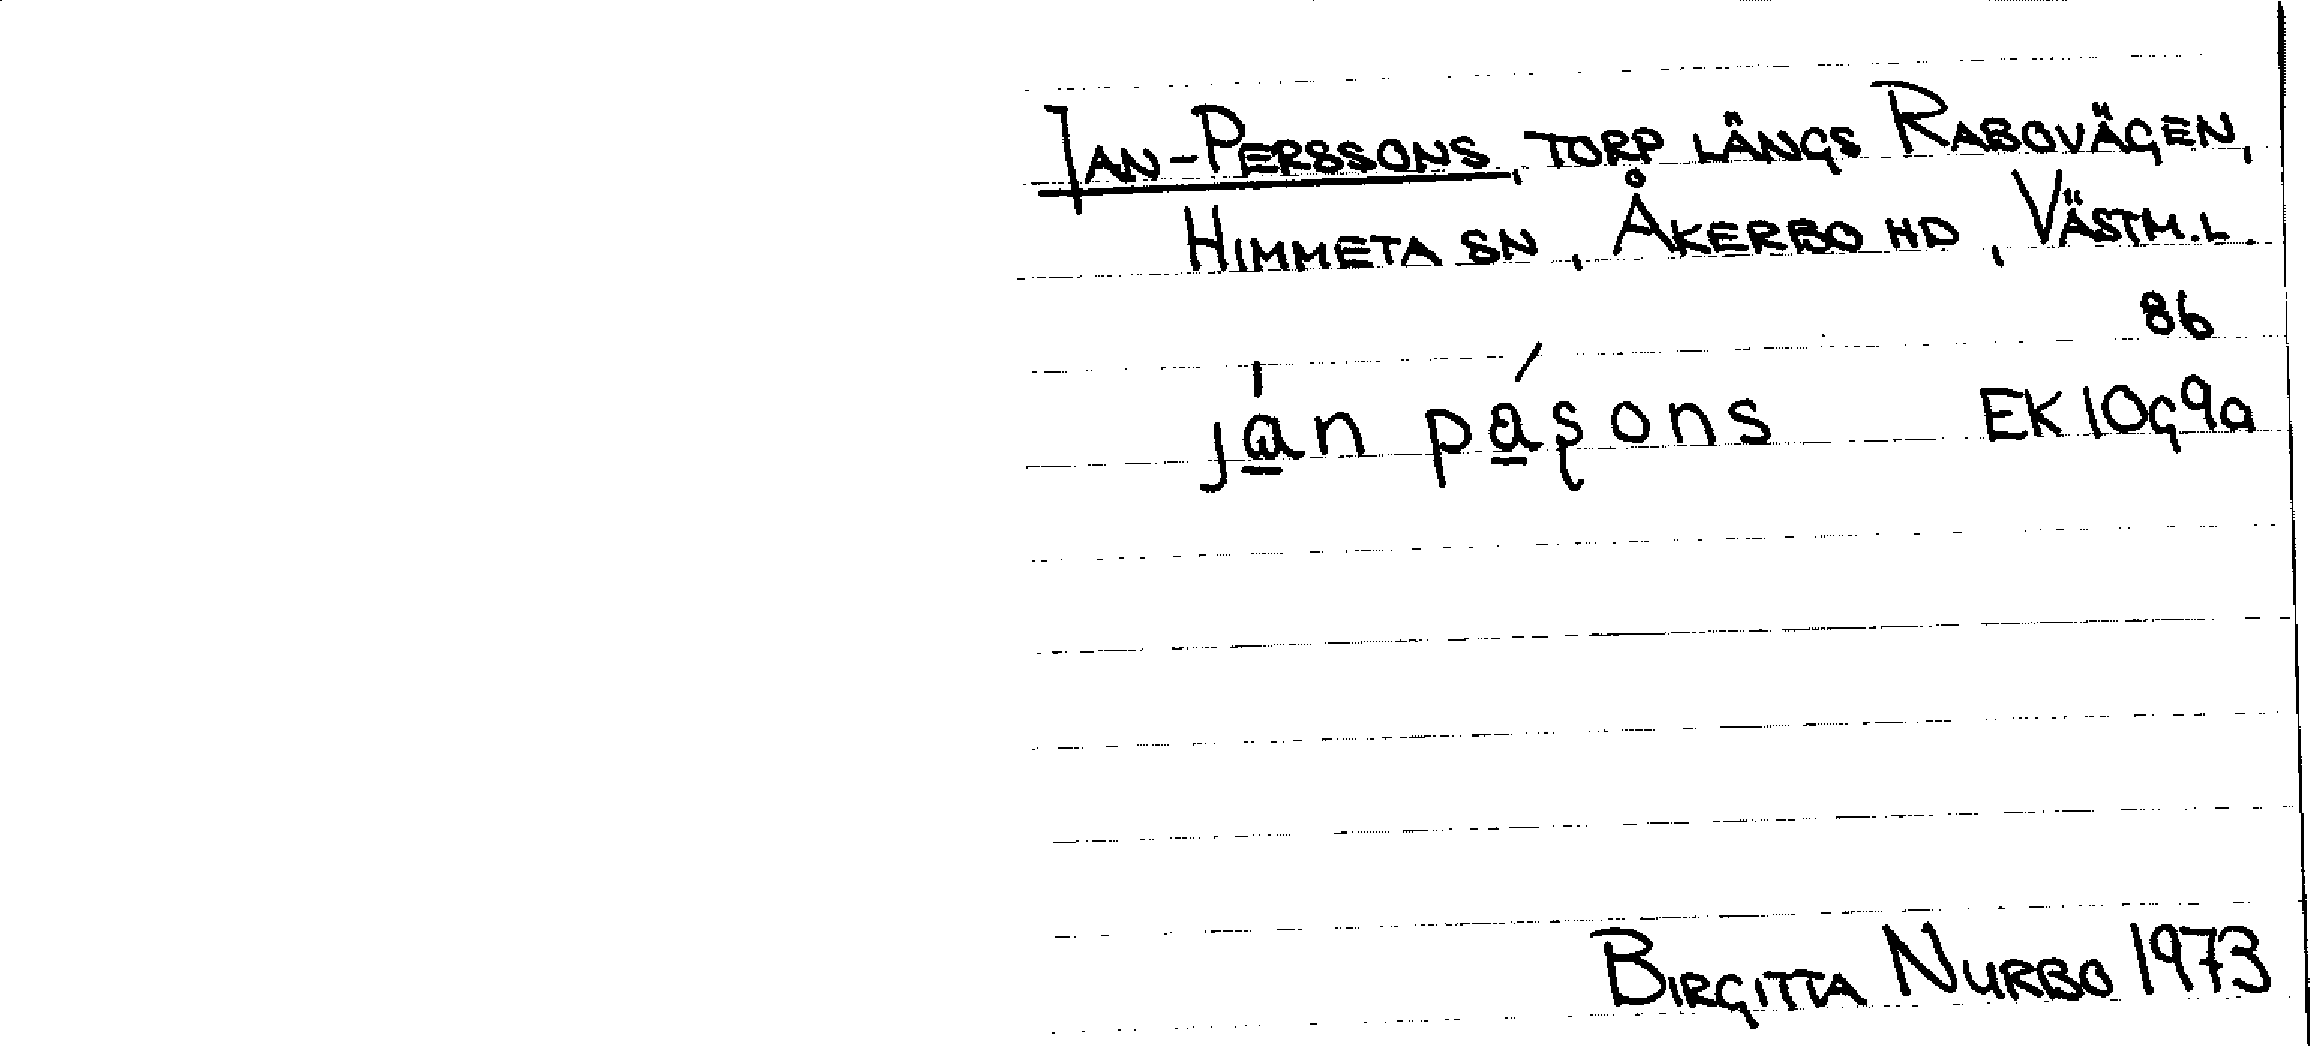 JAN-PERSSONS, TORP LÄNGS RABOVÄGEN,
HIMMETA SN, ÅKERBO HD, VÄSTM.L.
86
ja̲̍n pa̲̋ʂons EK 10G9a
BIRGITTA NURBO 1973